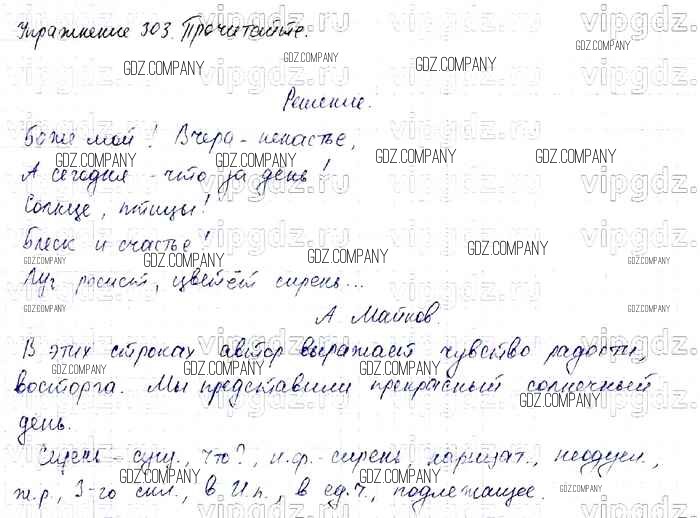 Упражнение 303. Прочитайте.
Решение.
Боже мой! Вчера - ненастье,
А сегодня - что за день!
Солнце, птицы!
Блеск и счастье!
Луг росист, цветёт сирень...
А. Майков.
В этих строках автор выражает чувство радости,
восторга. Мы представили прекрасный солнечный
день.
Сирень - сущ., что?, н.ф.- сирень, нарицат., неодуш.,
ж.р., 3-го скл., в И.п., в ед.ч., подлежащее.